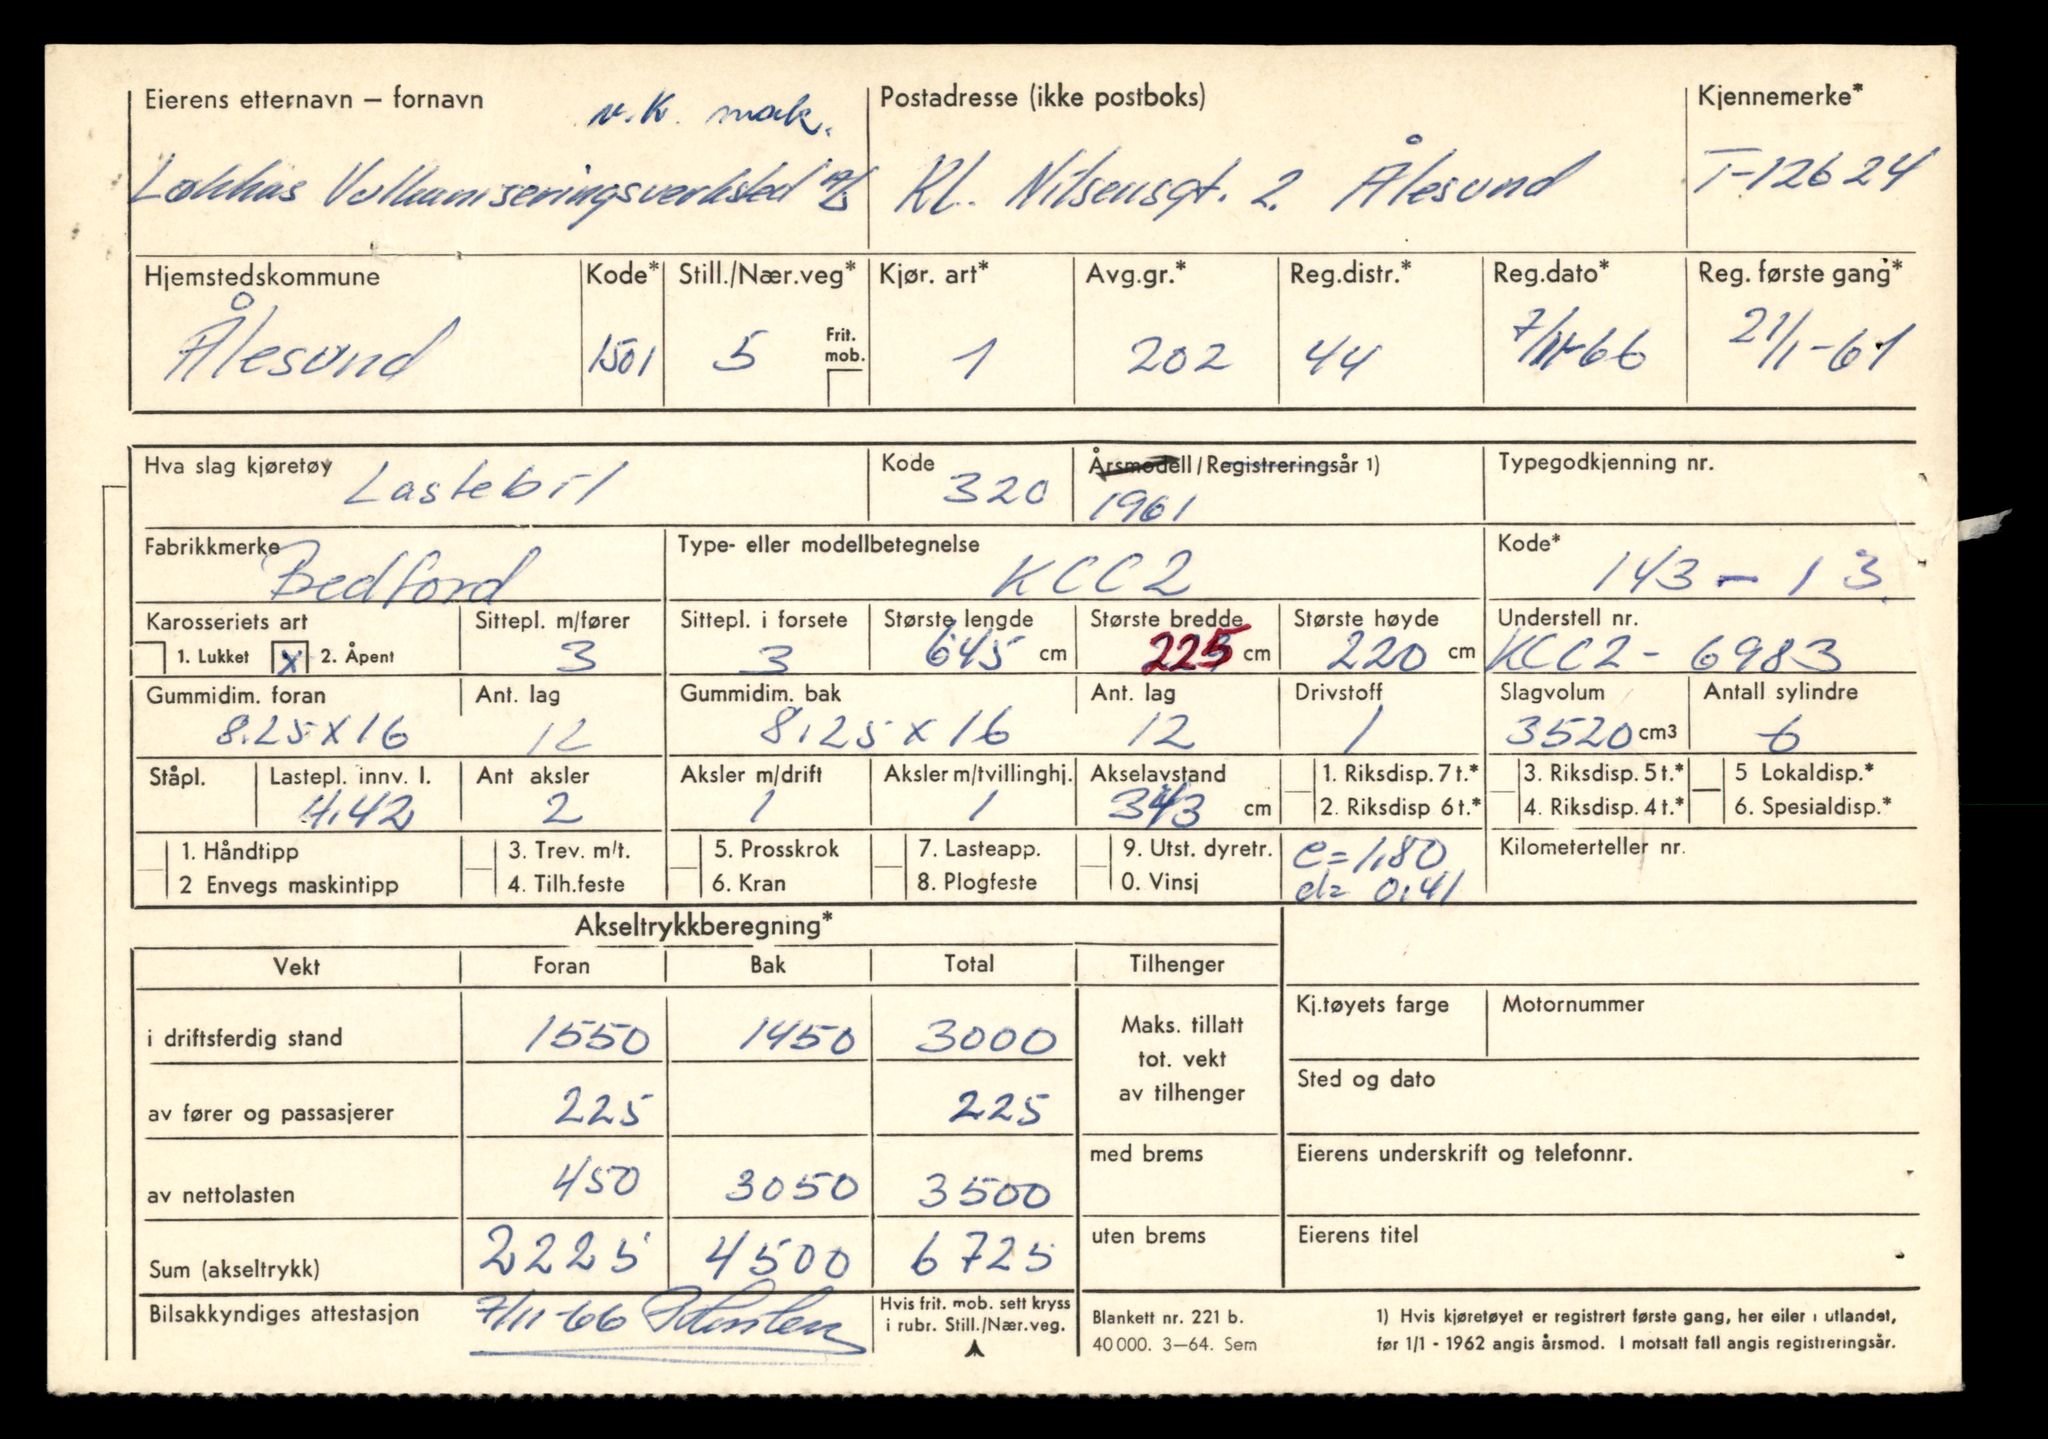 Eierens etternavn – fornavn Postadresse (ikke postboks) Kjennemerke*
v.K. mak.
Løkkas Vulkaniseringsverksted A/S Kl. Nilsensgt. 2. Ålesund T-12624
Hjemstedskommune Kode* Still./Nær.veg* Kjør. art* Avg.gr.* Reg.distr.* Reg.dato* Reg. første gang*
Ålesund 1501 5 Frit. mob. 1 202 44 7/11-66 21/1-61
Hva slag kjøretøy Lastebil Kode 320 Årsmodell/Registreringsår 1) 1961 Typegodkjenning nr.
Fabrikkmerke Bedford Type- eller modellbetegnelse KCC2 Kode* 143-13
Karosseriets art Sittepl. m/fører Sittepl. i forsete Største lengde Største bredde Største høyde Understell nr.
1. Lukket X 2. Åpent 3 3 645 cm 225 cm 220 cm KCC2- 6983
Gummidim. foran Ant. lag Gummidim. bak Ant. lag Drivstoff Slagvolum Antall sylindre
8.25x16 12 8.25x16 12 1 3520 cm3 6
Ståpl. Lastepl. innv. l. Ant aksler Aksler m/drift Aksler m/tvillinghj. Akselavstand 1. Riksdisp. 7 t.* 3. Riksdisp. 5 t.* 5 Lokaldisp.*
4.42 2 1 1 343 cm 2. Riksdisp 6 t.* 4. Riksdisp. 4 t.* 6. Spesialdisp.*
1. Håndtipp 3. Trev. m/t. 5. Prosskrok 7. Lasteapp. 9. Utst. dyretr. e=1,80 Kilometerteller nr.
2 Envegs maskintipp 4. Tilh.feste 6. Kran 8. Plogfeste 0. Vinsj d= 0,41
Akseltrykkberegning*
Vekt Foran Bak Total Tilhenger
Kj.tøyets farge Motornummer
i driftsferdig stand 1550 1450 3000 Maks. tillatt
tot. vekt
av tilhenger
Sted og dato
av fører og passasjerer 225 225
med brems Eierens underskrift og telefonnr.
av nettolasten 450 3050 3500
uten brems Eierens titel
Sum (akseltrykk) 2225 4500 6725
Bilsakkyndiges attestasjon 7/11-66
Hvis frit. mob. sett kryss
i rubr. Still./Nær.veg.
Blankett nr. 221 b.
40 000. 3–64. Sem
1) Hvis kjøretøyet er registrert første gang, her eiler i utlandet,
før 1/1 - 1962 angis årsmod. I motsatt fall angis registreringsår.